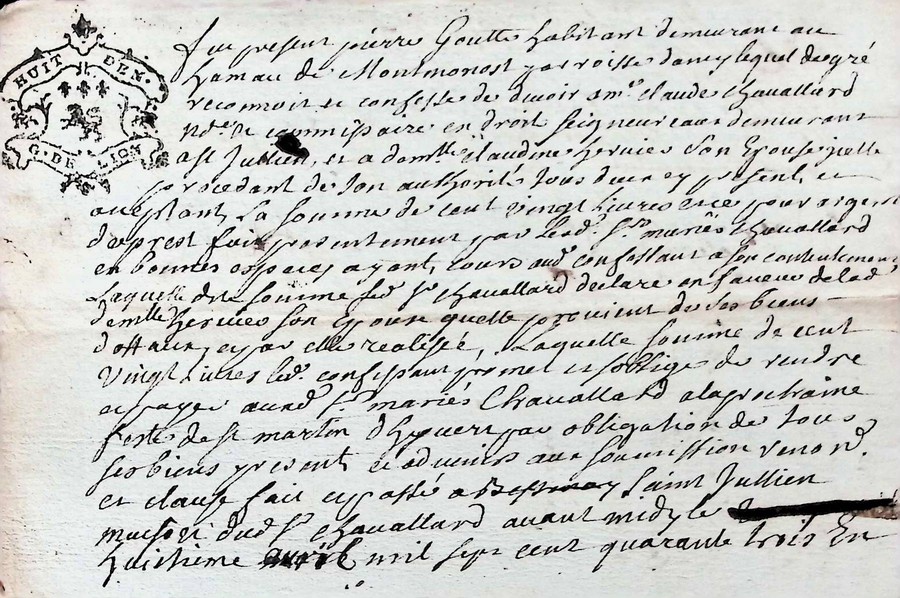 HUIT DEN.
G. DE LION
fut present pierre Goutte habitant demeurant au
hamau de Montmonost parroisse dancy lequel de gré
reconnoit et confesse de devoir a mr. claude Chavallard
commissaire en droit seigneureaux demeurant
a st Jullien, et a demlle claudine hervier son Epouse icelle
procedant de son authorité tous deux y present, et
acceptant, la somme de cent vingt livres et ce pour argent
de prest fait presentement par lesd. sr. mariés Chavallard
en bonnes especes ayant cours aud. confessant a son contentement
Laquelle dite somme led sr Chavallard declare en faveur de lad
demlle hervier son Epouse quelle provient de ses biens
et par elle realisée, Laquelle somme de cent
vingt Livres led. confessant promet et soblige de rendre
et payer auxd sr. mariés Chavallard a la prochaine
feste de st martin dhyver par obligation de tous
ses biens present et advenirs aux soumission renond.
et clause fait et passé a Saint Jullien
maison dud sr Chavallard avant midy le
huitieme avril mil sept cent quarante trois En